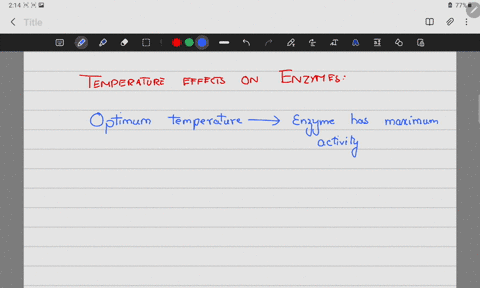 2:14
77%
Title
TEMPERATURE EFFECTS ON ENZYMES:
Optimum temperature → Enzyme has maximum
activity